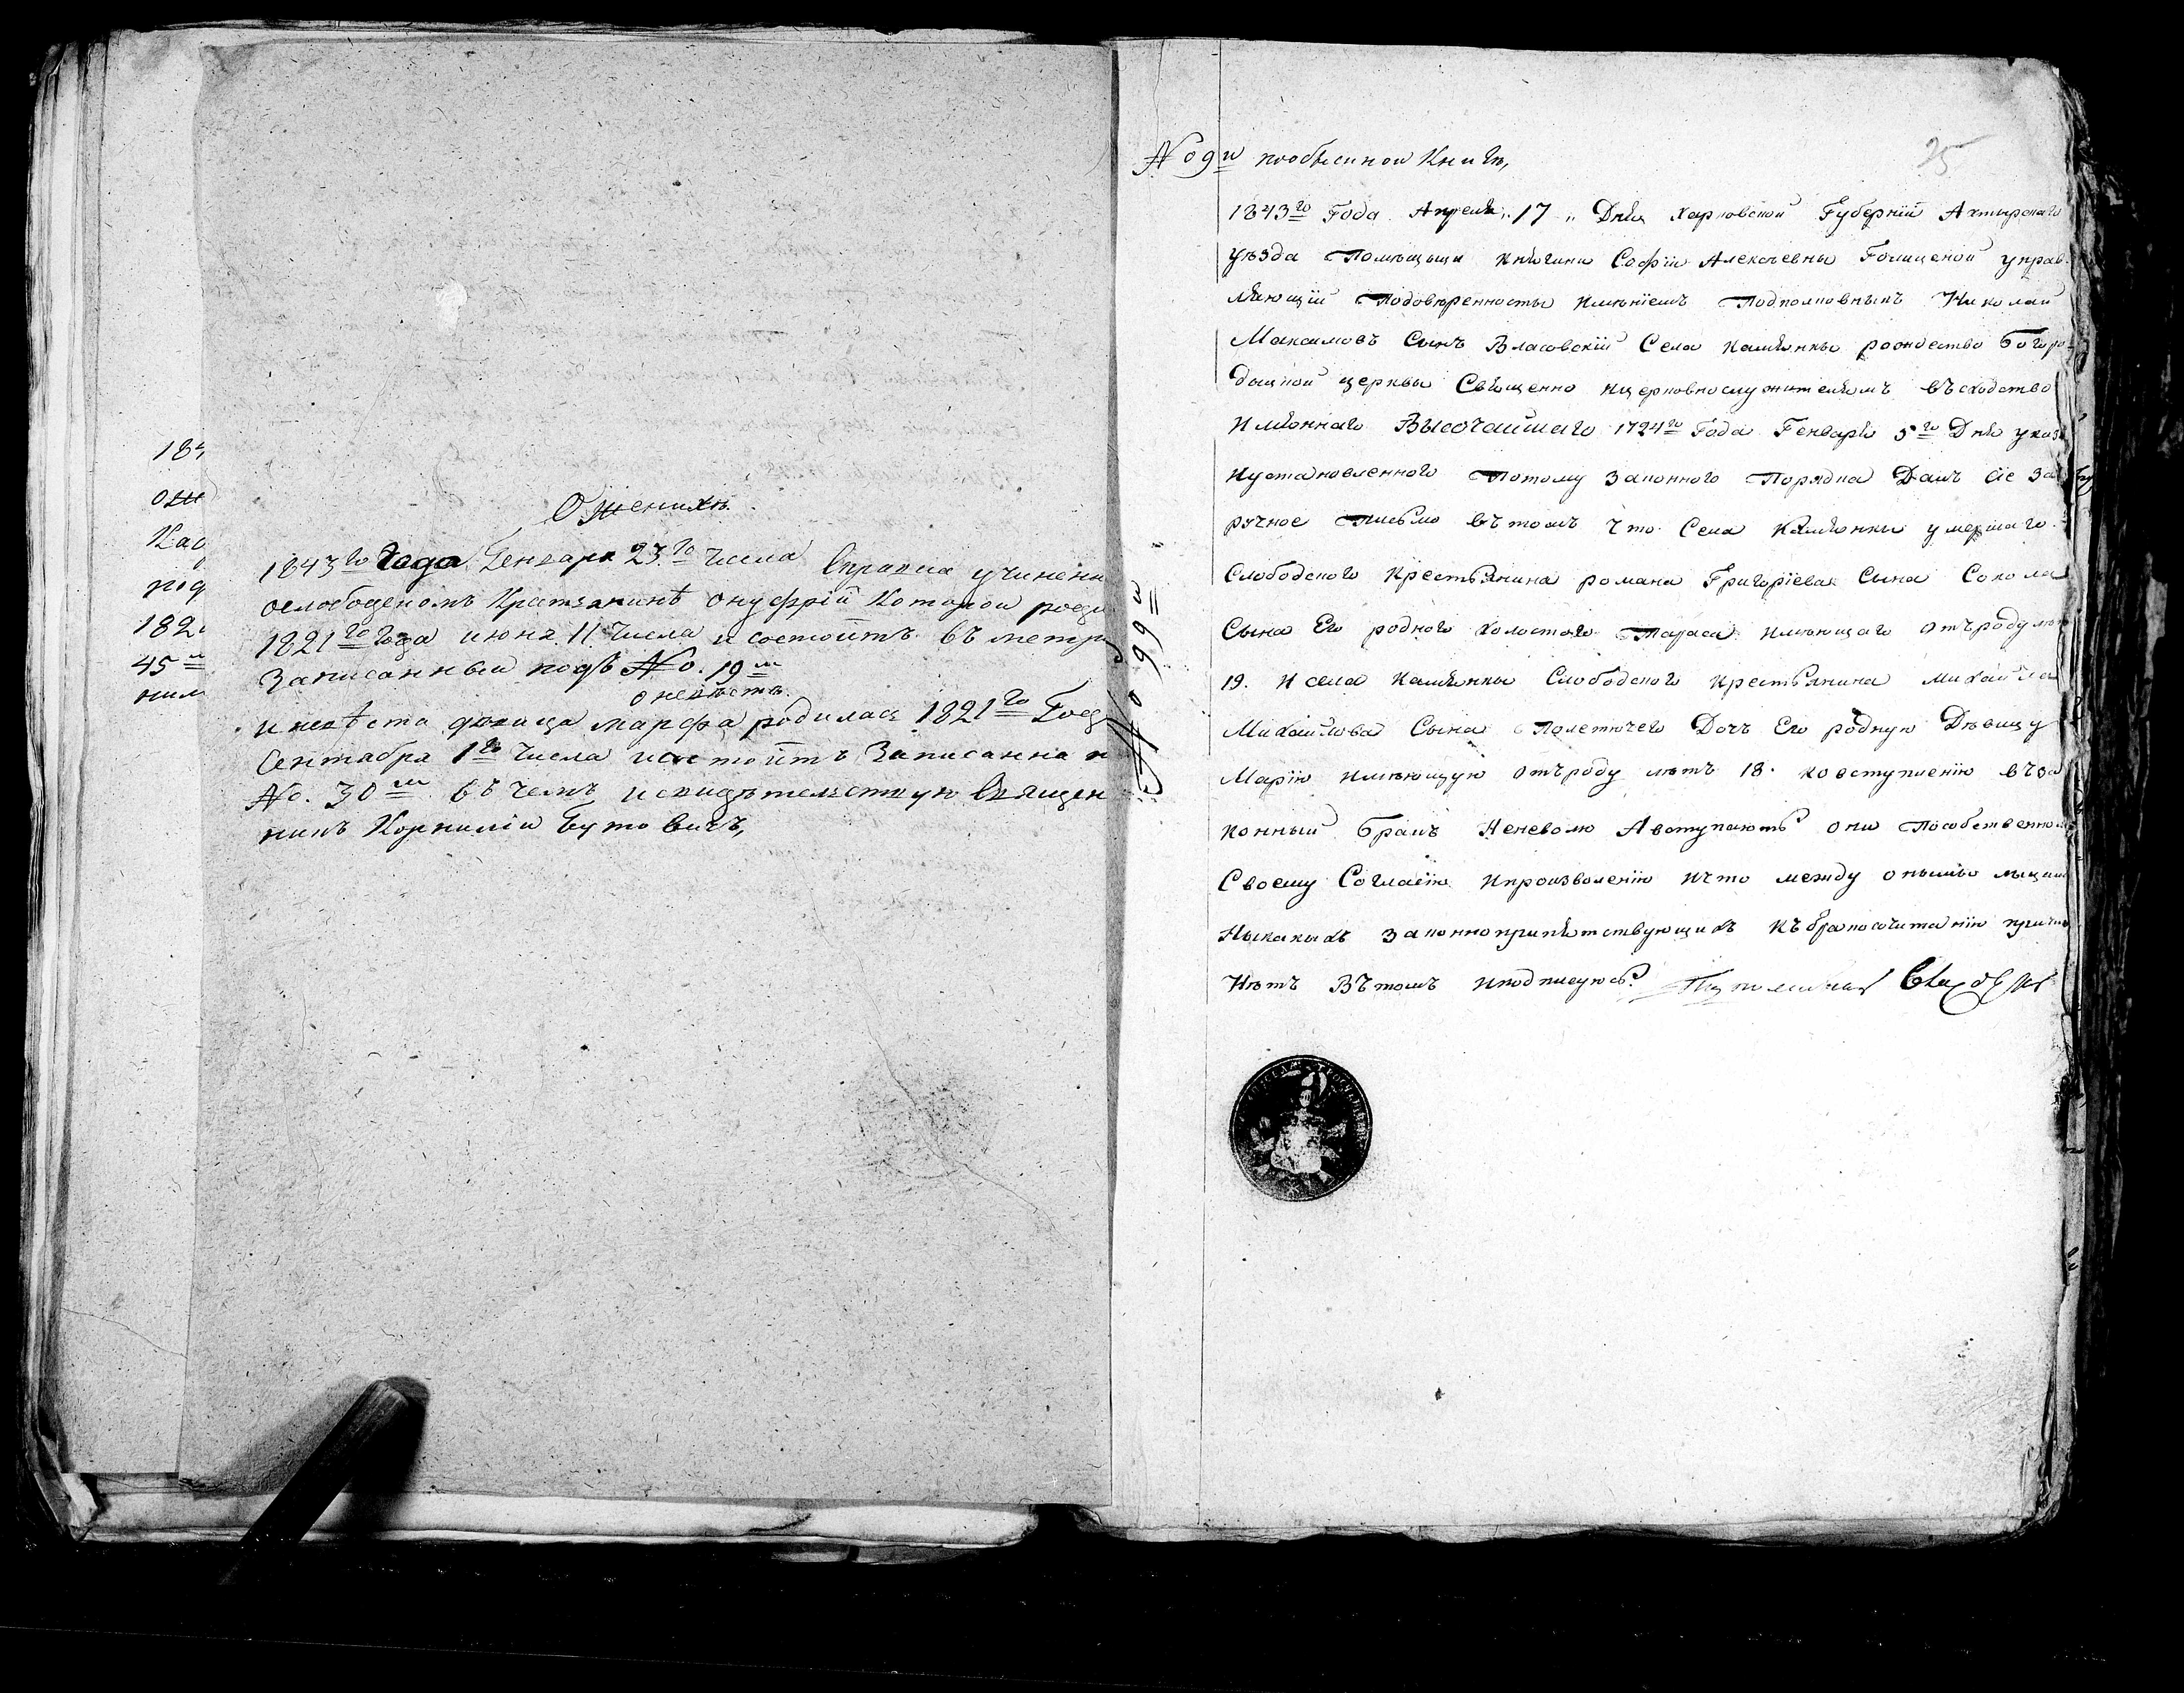 184
ож
Кас
под
182
45 м
ним
О женихѣ.
1843го Года Генваря 23.го числа Справка учинена
ослободскомъ Крестьянинѣ онуфрій Котолои роди
1821го Года июня 11 числа и состоитъ въ метри
Записанный подъ No. 19м
о невѣстѣ.
и невѣста дѣвица марфа родилась 1821го Году
Сентября 1го Числа исостоитъ Записанна п
No. 30м въ чемъ исвидѣтельствую Священ
никъ Корнилій Бутовичъ,
No 9и пообыскной Книгѣ,
25
No 99и
1843го Года Апреля „17„ Дня Харковской Губерніи Ахтырскаго
уѣзда Помѣщыци Княгини Софіи Алексѣевны Голицыной управ
ляющій Подовѣренносты имѣніемъ Подполковныкъ Николай
Максимовъ Сынъ Власовскій Села Камянкы рождество Богоро
дыцной церквы Священно ицерковнослужителямъ въсходство
Имяннаго Высочайшаго 1724го Года Генваря 5го Дня указа
Иустановленного Потому Законного Порядка Далъ Сіе За
ручное Письмо въ томъ Что Села Камянкы умершаго
Слободского Крестьянина романа Григоріева Сына Сокола
Сына Его родного Холостого Тараса имѣющаго отъроду лѣт
19. И села Камянкы Слободского Крестьянина Михайла
Михайлова Сына Полетючего Дочъ Его родную Дѣвицу
Марію имѣющую отъроду лѣтъ 18. ковступленію въза
конный бракъ Неневолю Авступаютъ они Пособственному
Своему Согласію ипроизволенію ичто между онымы лыцамы
Ныкакыхъ законнопрепятствующихъ къбракосочитанію причин
Нѣтъ Вътомъ иподписуюсь. Подполковникъ Власовскій